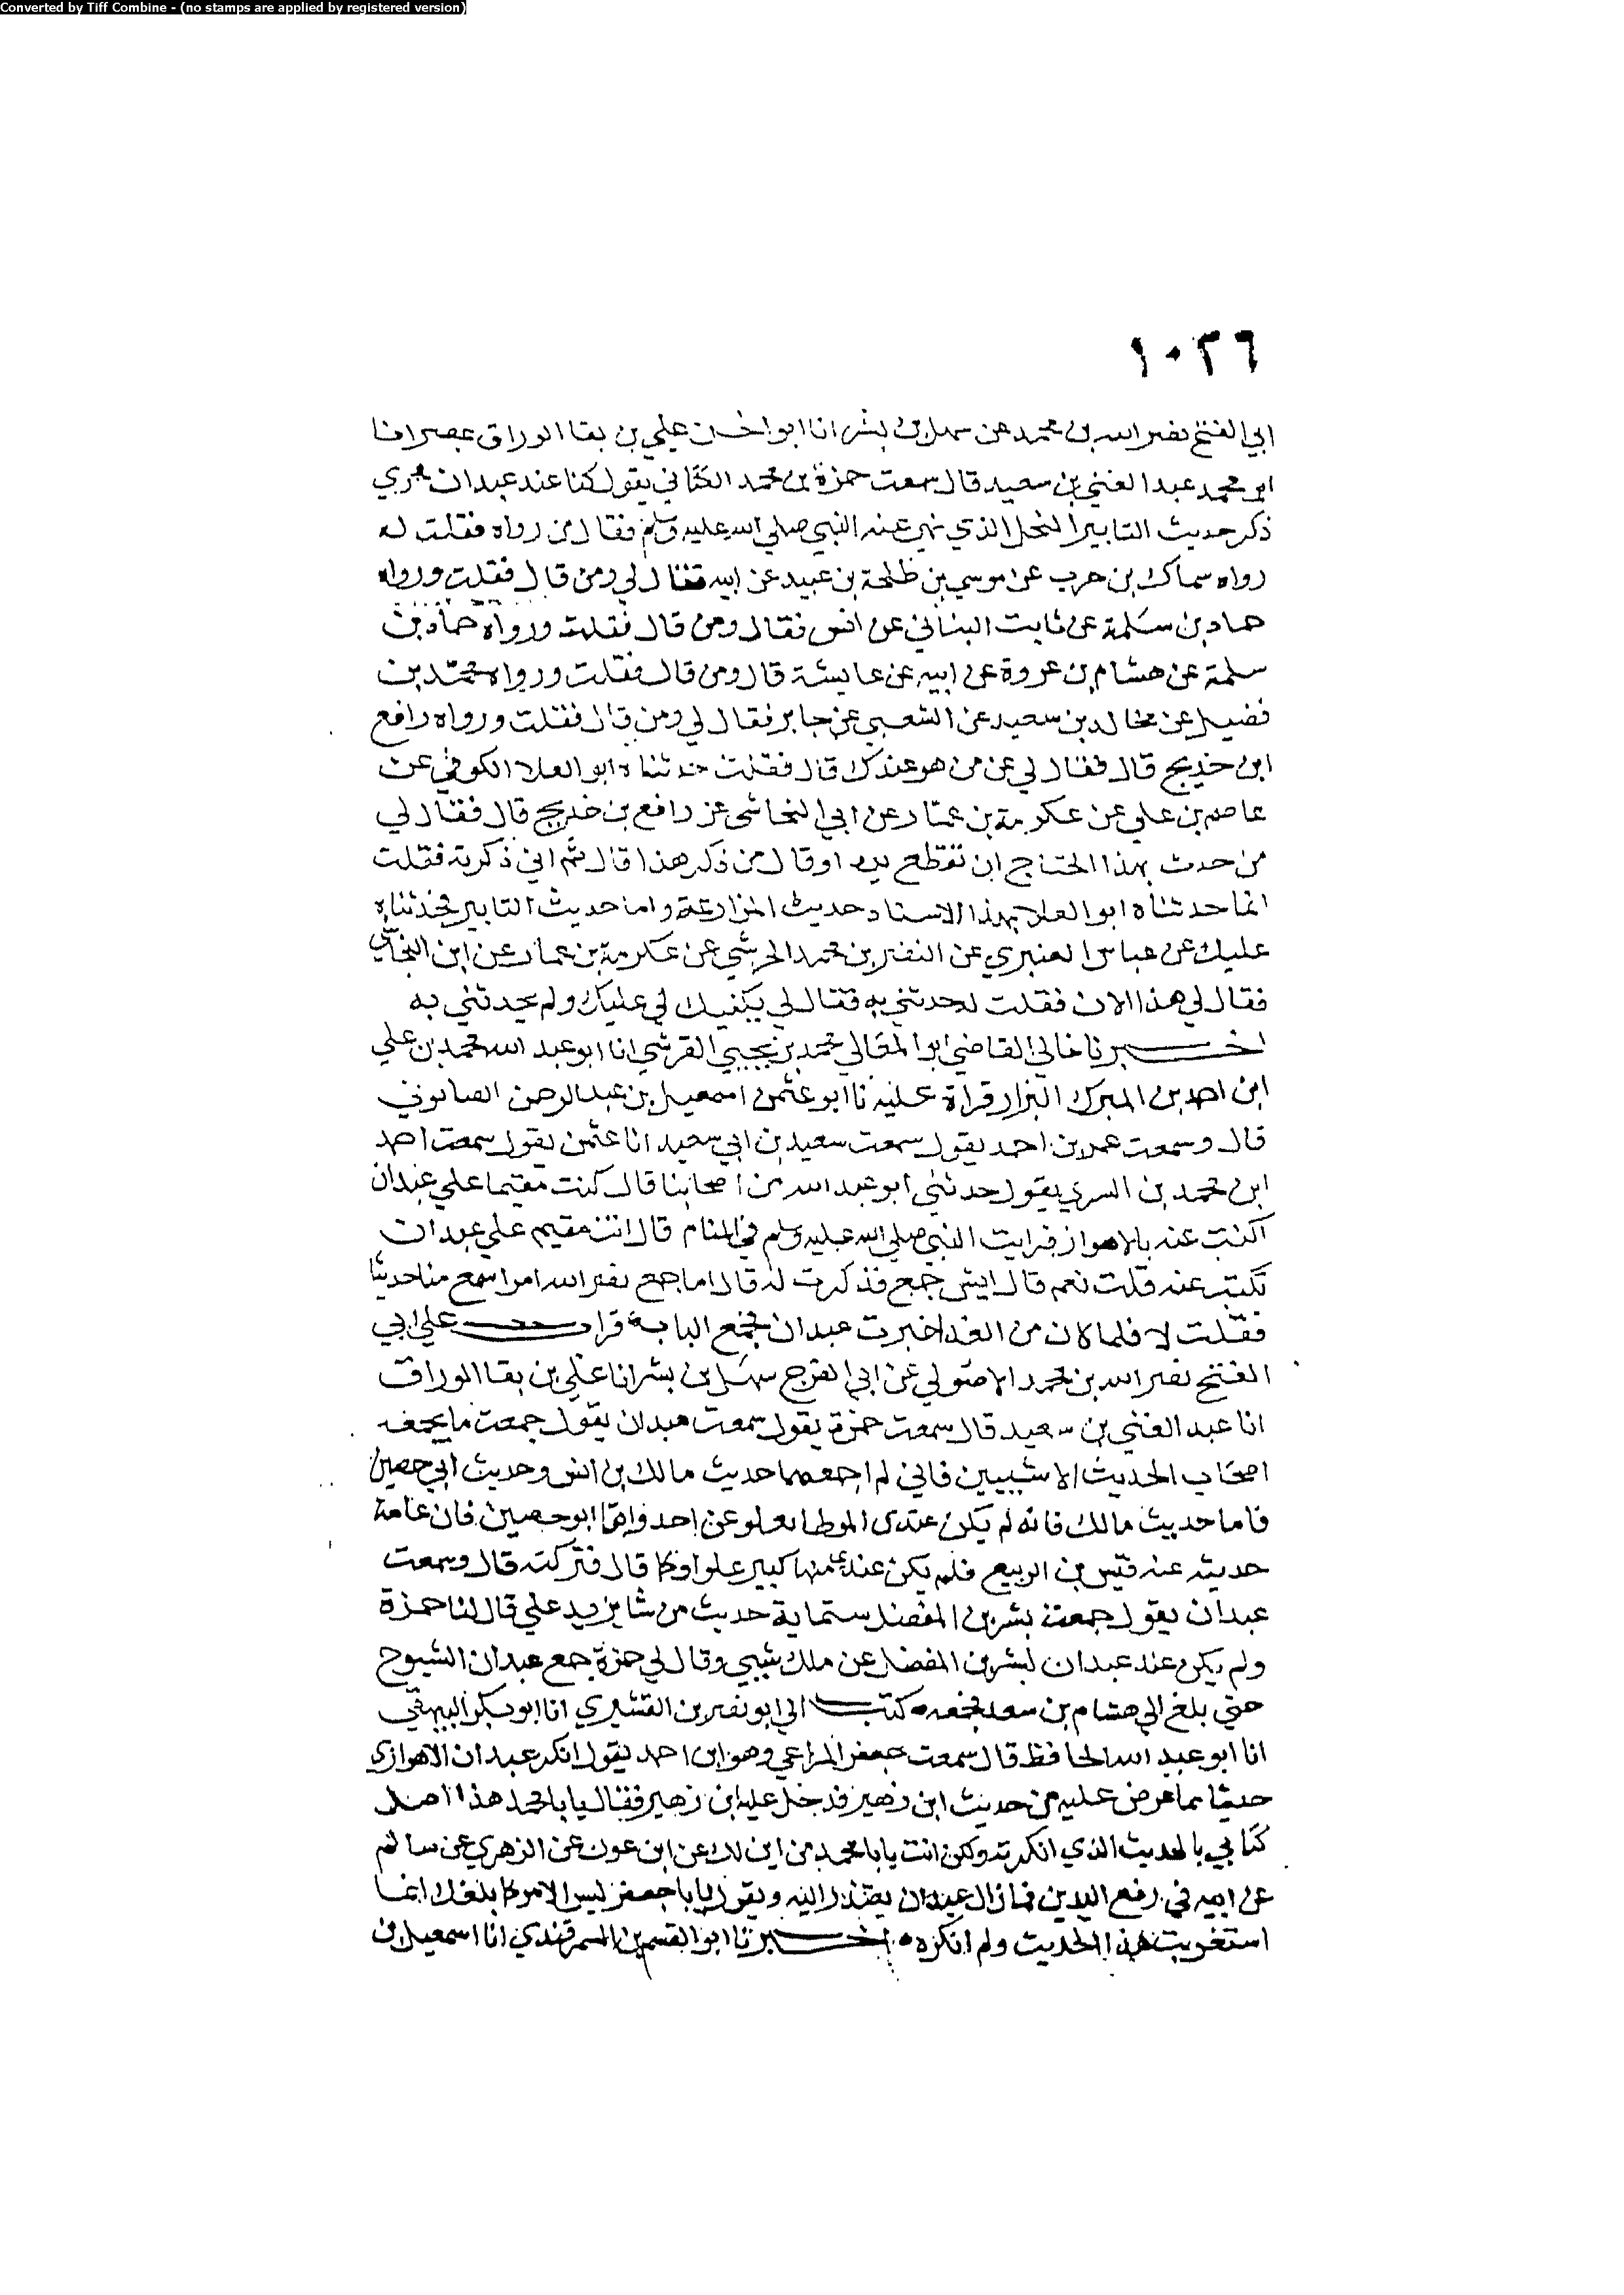 Converted by Tiff Combine - (no stamps are applied by registered version)
١٠٢٦
ابي الفتح نصر الله بن محمد عن سهل بن بشر انا ابو الحسن علي بن بقا الوراق بمصر انا
ابو محمد عبد الغني بن سعيد قال سمعت حمزة بن محمد الكناني يقول كنا عند عبدان فجري
ذكر حديث التابير النخل الذي نهى عنه النبي صلى الله عليه وسلم فقال من رواه فقلت له
رواه سماك بن حرب عن موسي بن طلحة بن عبيد عن ابيه فقال لي ومن قال فقلت ورواه
حماد بن سلمة عن ثابت البناني عن انس فقال ومن قال فقلت ورواه حماد بن
سلمة عن هشام بن عروة عن ابيه عن عايشة قال ومن قال فقلت ورواه محمد بن
فضيل عن مجالد بن سعيد عن الشعبي عن جابر فقال لي ومن قال فقلت ورواه رافع
ابن خديج قال فقال لي عن من هو عندك قال فقلت حدثناه ابو العلا الكوفي عن
عاصم بن علي عن عكرمة بن عمار عن ابي النجاشي عن رافع بن خديج قال فقال لي
من حدث بهذا احتاج ان تقطع يده او قال من ذكر هذا قال ثم اني ذكرته فقلت
انما حدثناه ابو العلا بهذا الاسناد حديث المزارعة واما حديث التابير فحدثناه
عليك عن عباس العنبري عن النضر بن محمد الجرشي عن عكرمة بن عمار عن ابن النجاشي
فقال لي هذا الان فقلت له حدثني به فقال لي يكفيك لي عليك ولم يحدثني به
اخبرنا خالي القاضي ابو المعالي محمد بن يحيي القرشي انا ابو عبد الله محمد بن علي
ابن احمد بن المبرك البزار قراة عليه نا ابو عثمن اسمعيل بن عبد الرحمن الصابوني
قال وسمعت عمر بن احمد يقول سمعت سعيد بن ابي سعيد انا عثمن يقول سمعت احمد
ابن محمد بن السري يقول حدثني ابو عبد الله من اصحابنا قال كنت مقيما علي عبدان
اكتب عنه بالاهواز فرايت النبي صلى الله عليه وسلم في المنام قال انت مقيم علي عبدان
تكتب عنه قلت نعم قال ايش جمع فذكرت له قال اما جمع نضر الله امرا سمع منا حديثا
فقلت لا فلما كان من الغد اخبرت عبدان فجمع الباب قرات علي ابي
الفتح نصر الله بن محمد الاصولي عن ابي الفرج سهل بن بشر انا علي بن بقا الوراق
انا عبد الغني بن سعيد قال سمعت حمزة يقول سمعت عبدان يقول جمعت ما يجمعه
اصحاب الحديث الا شيين فاني لم اجمعهما حديث مالك بن انس وحديث ابي حصين
فاما حديث مالك فانه لم يكن عندي الموطا بعلو عن احد واما ابو حصين فان عامة
حديثه عنه قيس بن الربيع فلم يكن عندي منها كبير علو او كما قال فتركته قال وسمعت
عبدان يقول جمعت بشر بن المفضل ستماية حديث من شا يزيد علي قال لنا حمزة
ولم يكن عند عبدان لبشر بن المفضل عن ملك شيي وقال لي حمزة جمع عبدان الشيوخ
حتى بلغ الي هشام بن سعد فجمعه كتب الي ابو نصر بن القشيري انا ابو بكر البيهقي
انا ابو عبد الله الحافظ قال سمعت جعفر المراغي وهو ابن احمد يقول انكر عبدان الاهوازي
حديثا مما عرض عليه من حديث ابن زهير فدخل عليه ابن زهير فقال يا با محمد هذا اصل
كتابي بالحديث الذي انكرته ولكن انت يا با محمد من اين لك عن ابن عون عن الزهري عن سالم
عن ابيه في رفع اليدين فما زال عبدان يعتذر اليه ويقول يا با جعفر ليس الامر كما بلغك انما
استغربت هذا الحديث ولم انكره اخبرنا ابو القسم بن السمرقندي انا اسمعيل بن